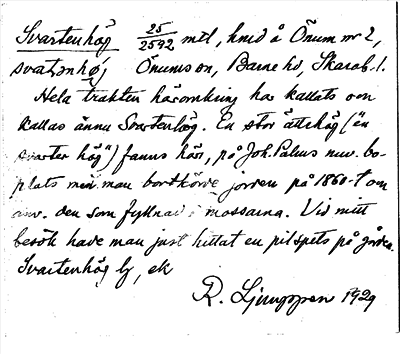 Svartenhög 25/2592 mtl, hmd å Önum nr 2,
svatənhøj Önums sn, Barne hd, Skarab. l.
Hela trakten häromkring har kallats och
kallas ännu Svartenhög. En stor ättehög ("en
svarter hög") fanns här, på Joh. Palms nuv. bo-
plats men man bortkörde jorden på 1860-t om
anv. den som fyllnad i mossarna. Vid mitt
besök hade man just hittat en pilspets på gården.
Svartenhög by, ek
R. Ljunggren 1929